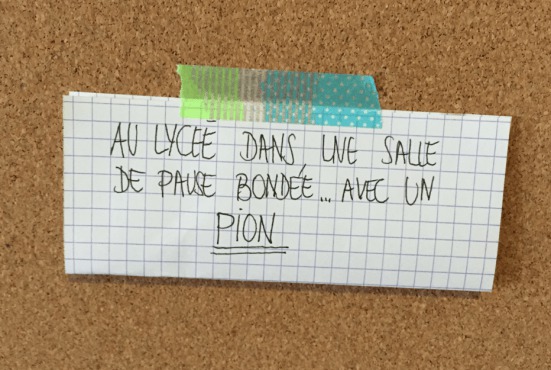 AU LYCEÉ DANS UNE SALLE
DE PAUSE BONDÉE... AVEC UN
PION